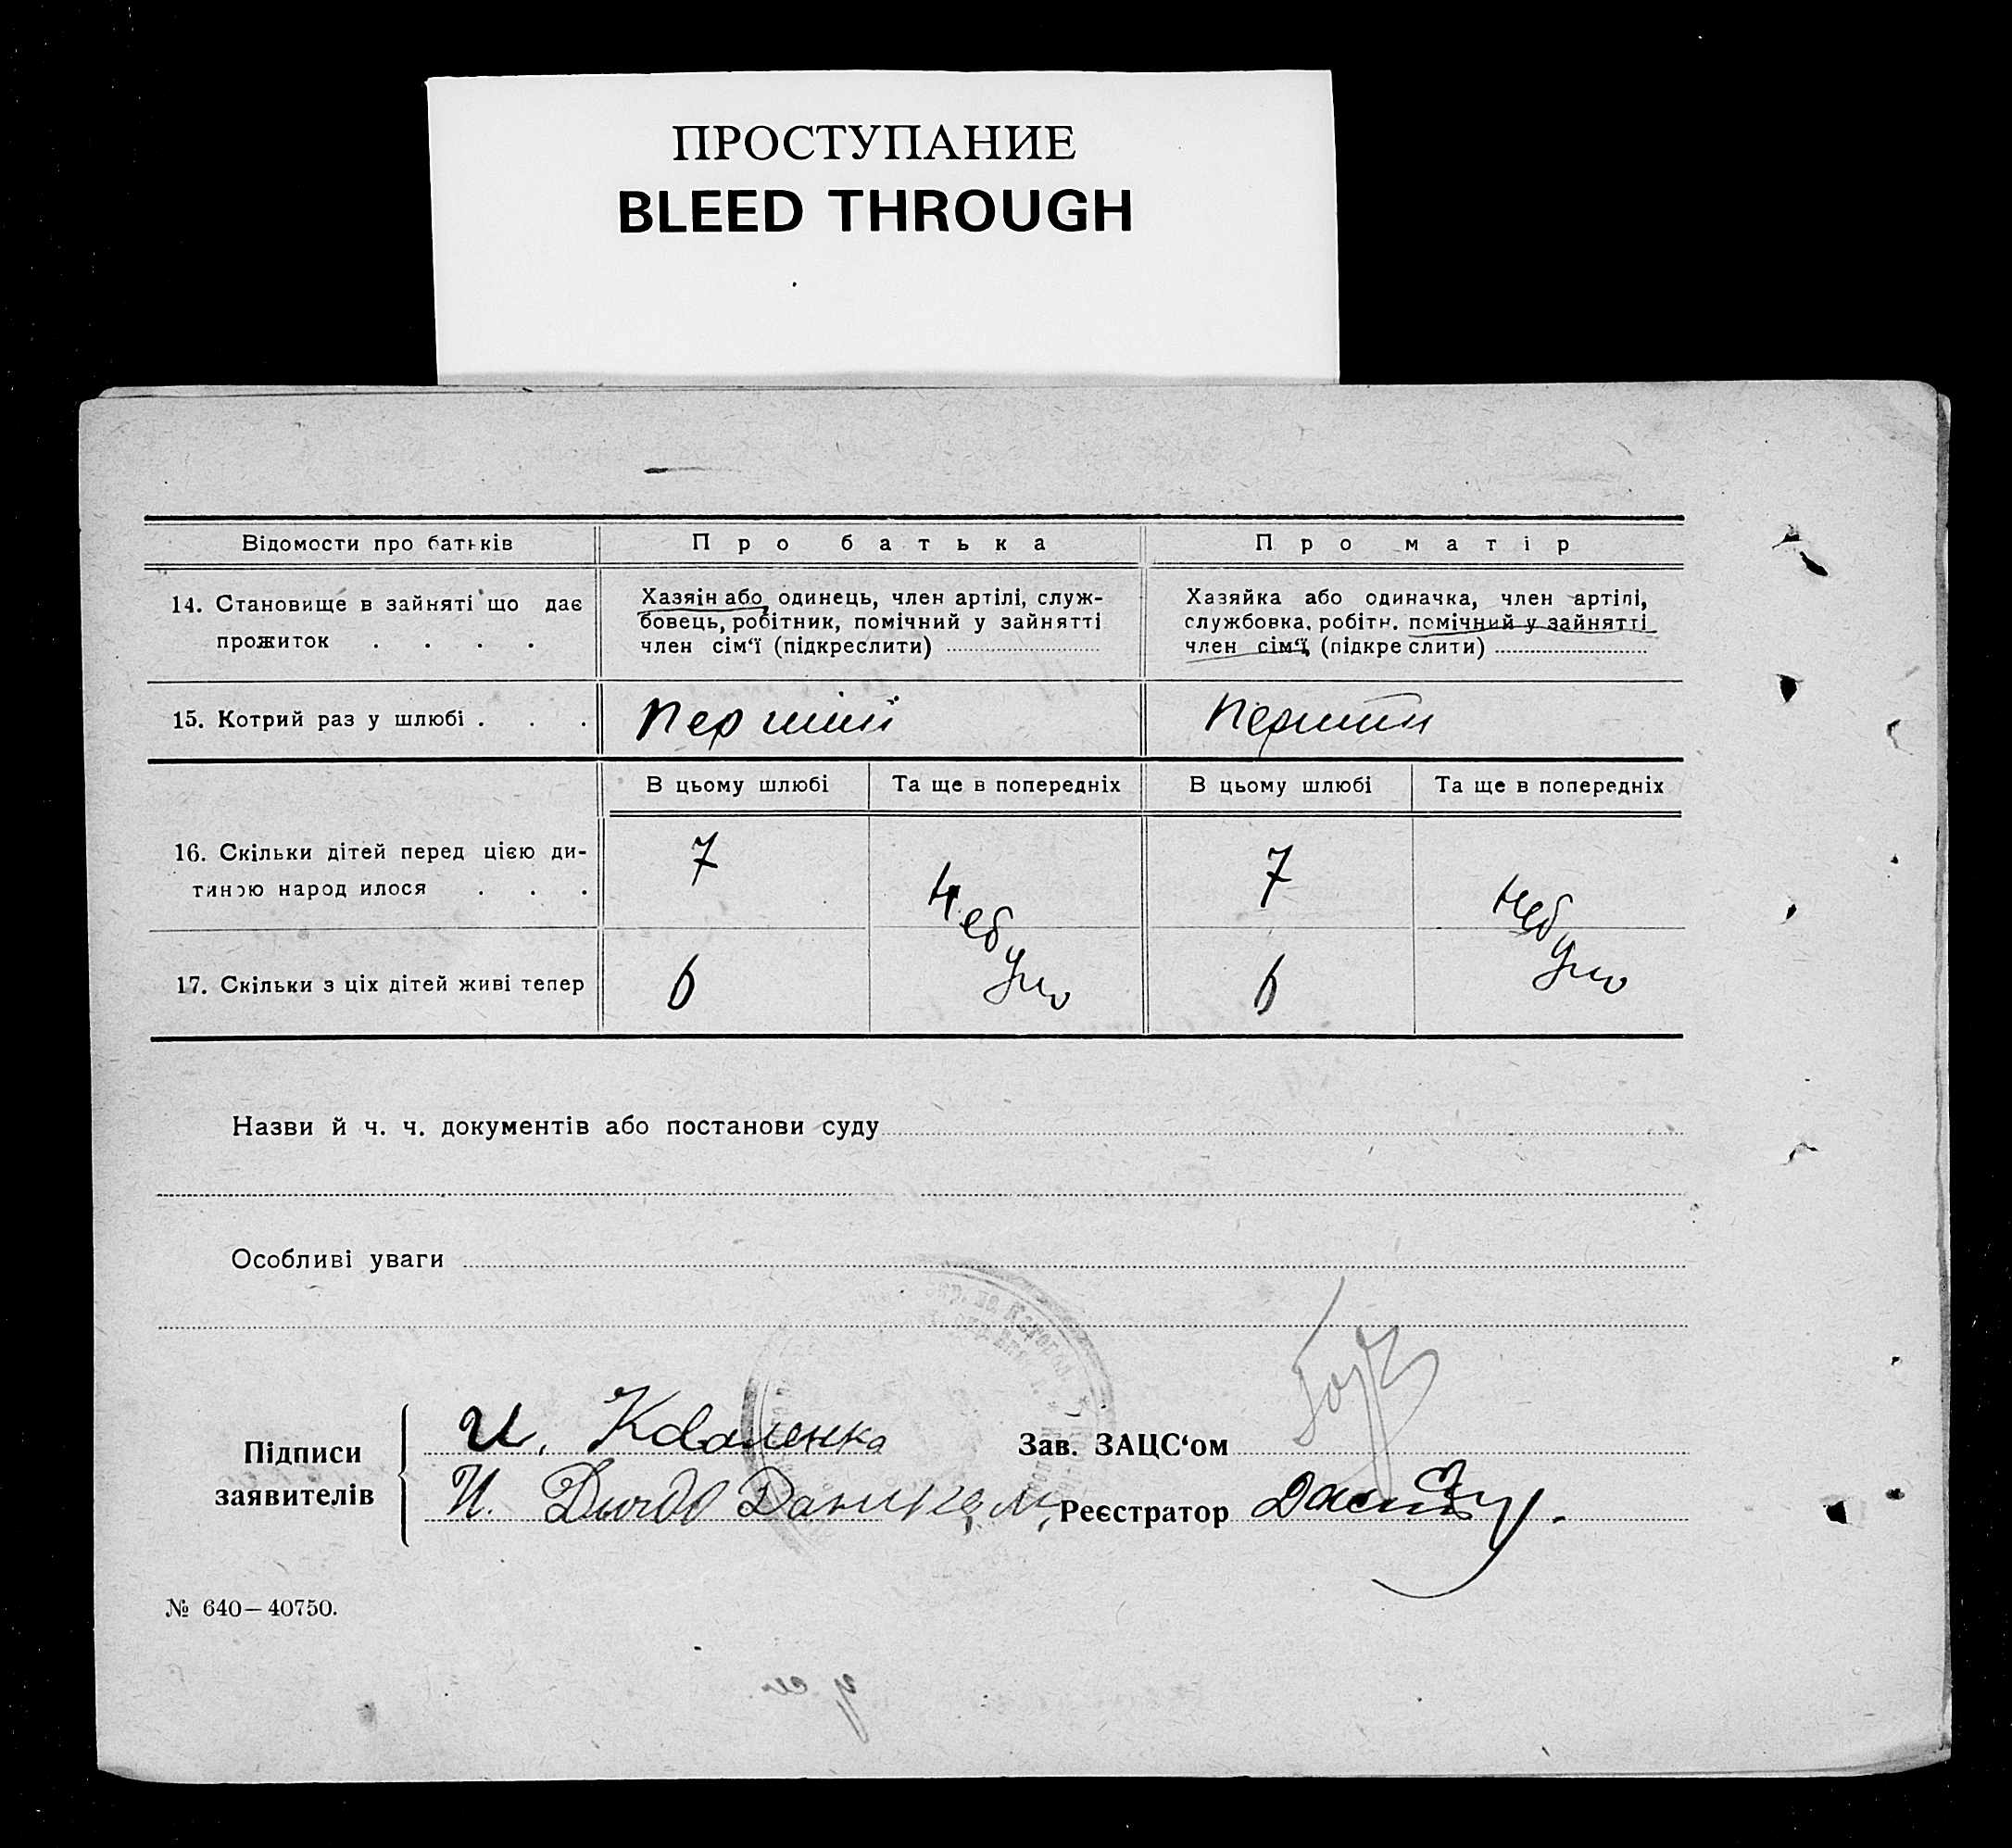 ПРОСТУПАНИЕ
BLEED THROUGH
Відомости про батьків
Про батька
Про матір
14. Становище в зайняті що дає
прожиток . . . .
Хазяїн або одинець, член артілі, служ-
бовець, робітник, помічний у зайнятті
член сім‘ї (підкреслити)
Хазяйка або одиначка, член артілі,
службовка, робітн. помічний у зайнятті
член сім‘ї, (підкре слити)
15. Котрий раз у шлюбі . . .
Перший
Перший
В цьому шлюбі
Та ще в попередніх
В цьому шлюбі
Та ще в попередніх
16. Скільки дітей перед цією ди-
тиною народ илося . . .
7
Небуло
7
Небуло
17. Скільки з ціх дітей живі тепер
6
6
Назви й ч. ч. документів або постанови суду
Особливі уваги
Підписи
заявителів
И. Коваленко
Зав. ЗАЦС‘ом
И.
Реєстратор
№ 640—40750.